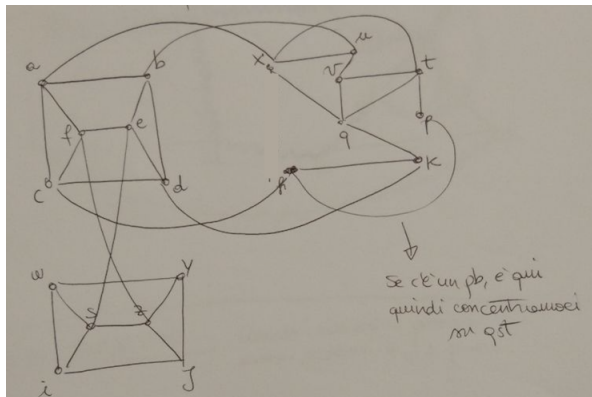 a
b
x
u
v
t
f
e
q
p
c
d
h
K
w
y
s
z
i
J
se c'è un pb, è qui
quindi concentriamoci
su qst